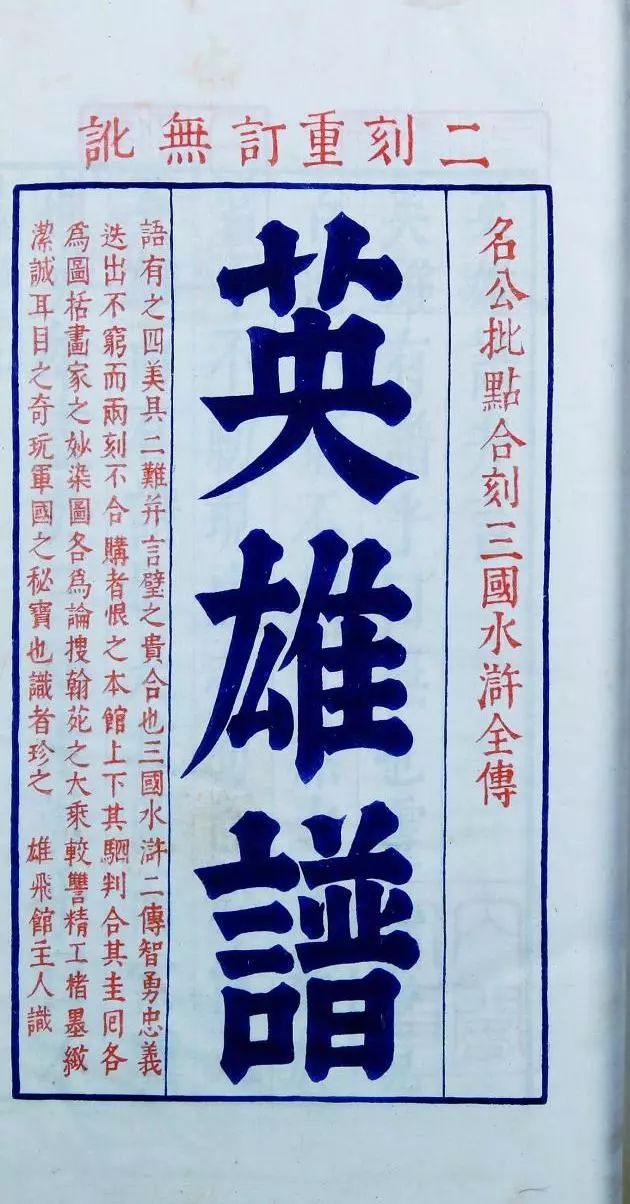 二刻重訂無訛
名公批點合刻三國水滸全傳
英雄譜
語有之四美具二難并言璧之貴合也三國水滸二傳智勇忠義
迭出不窮而兩刻不合購者恨之本館上下其駟判合其圭囘各
為圖括畫家之妙染圖各為論搜翰苑之大乘較讐精工楮墨緻
潔誠耳目之奇玩軍國之秘寶也識者珍之 雄飛館主人識